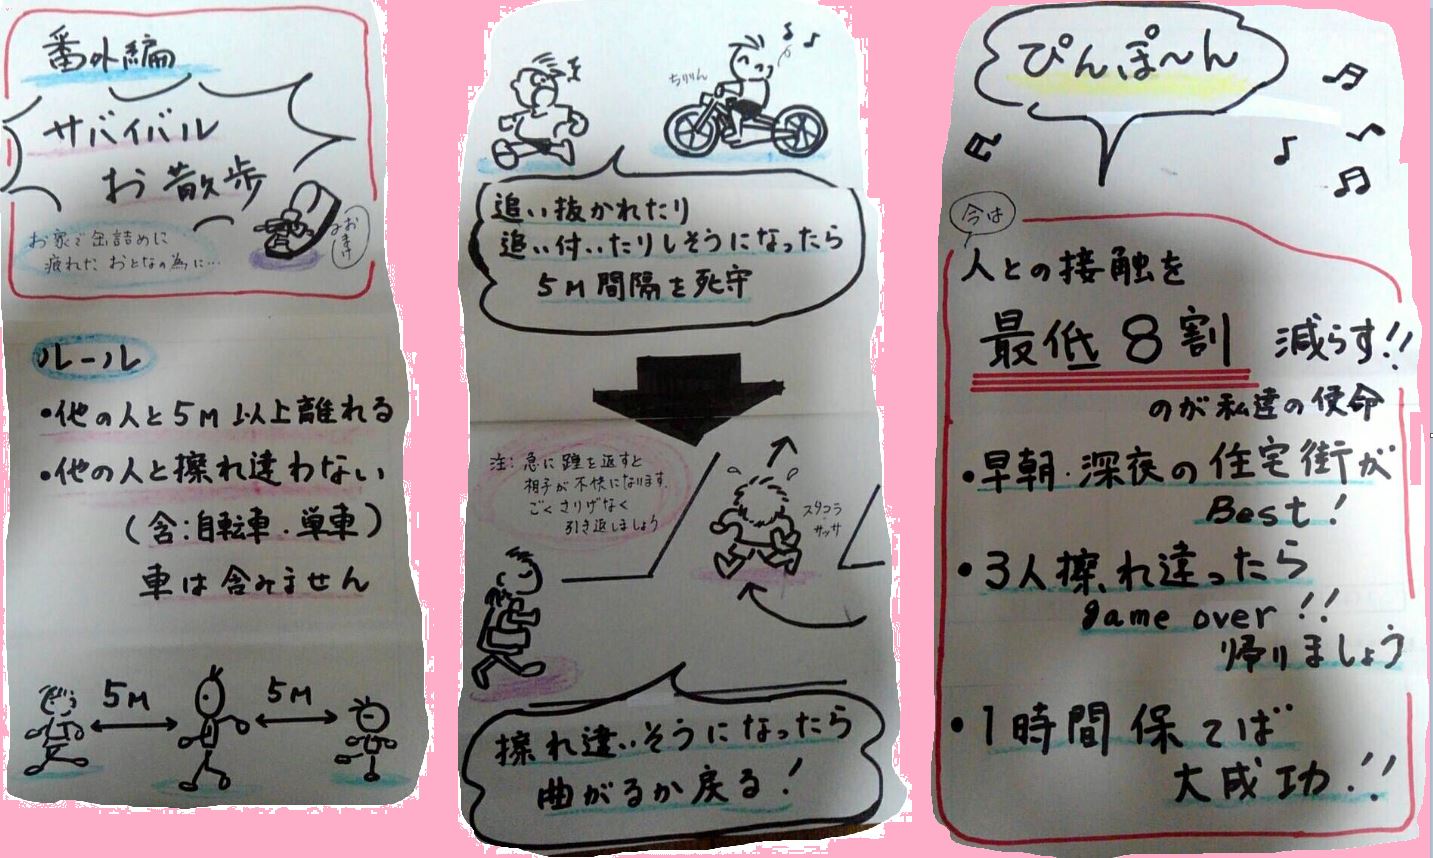 番外編
サバイバル
お散歩
おまけ
お家で缶詰めに
疲れた おとなの為に…
ルール
・他の人と5M以上離れる
・他の人と擦れ違わない
(含:自転車・単車)
車は含みません
5M 5M
ちりりん
追い抜かれたり
追い付いたりしそうになったら
5M間隔を死守
注:急に踵を返すと
相手が不快になります。
ごくさりげなく
引き返しましょう
スタコラ
サッサ
擦れ違いそうになったら
曲がるか戻る!
ぴんぽ〜ん
今は
人との接触を
最低8割 減らす!!
のが私達の使命
・早朝・深夜の住宅街が
Best!
・3人擦れ違ったら
game over!!
帰りましょう
・1時間保てば
大成功!!